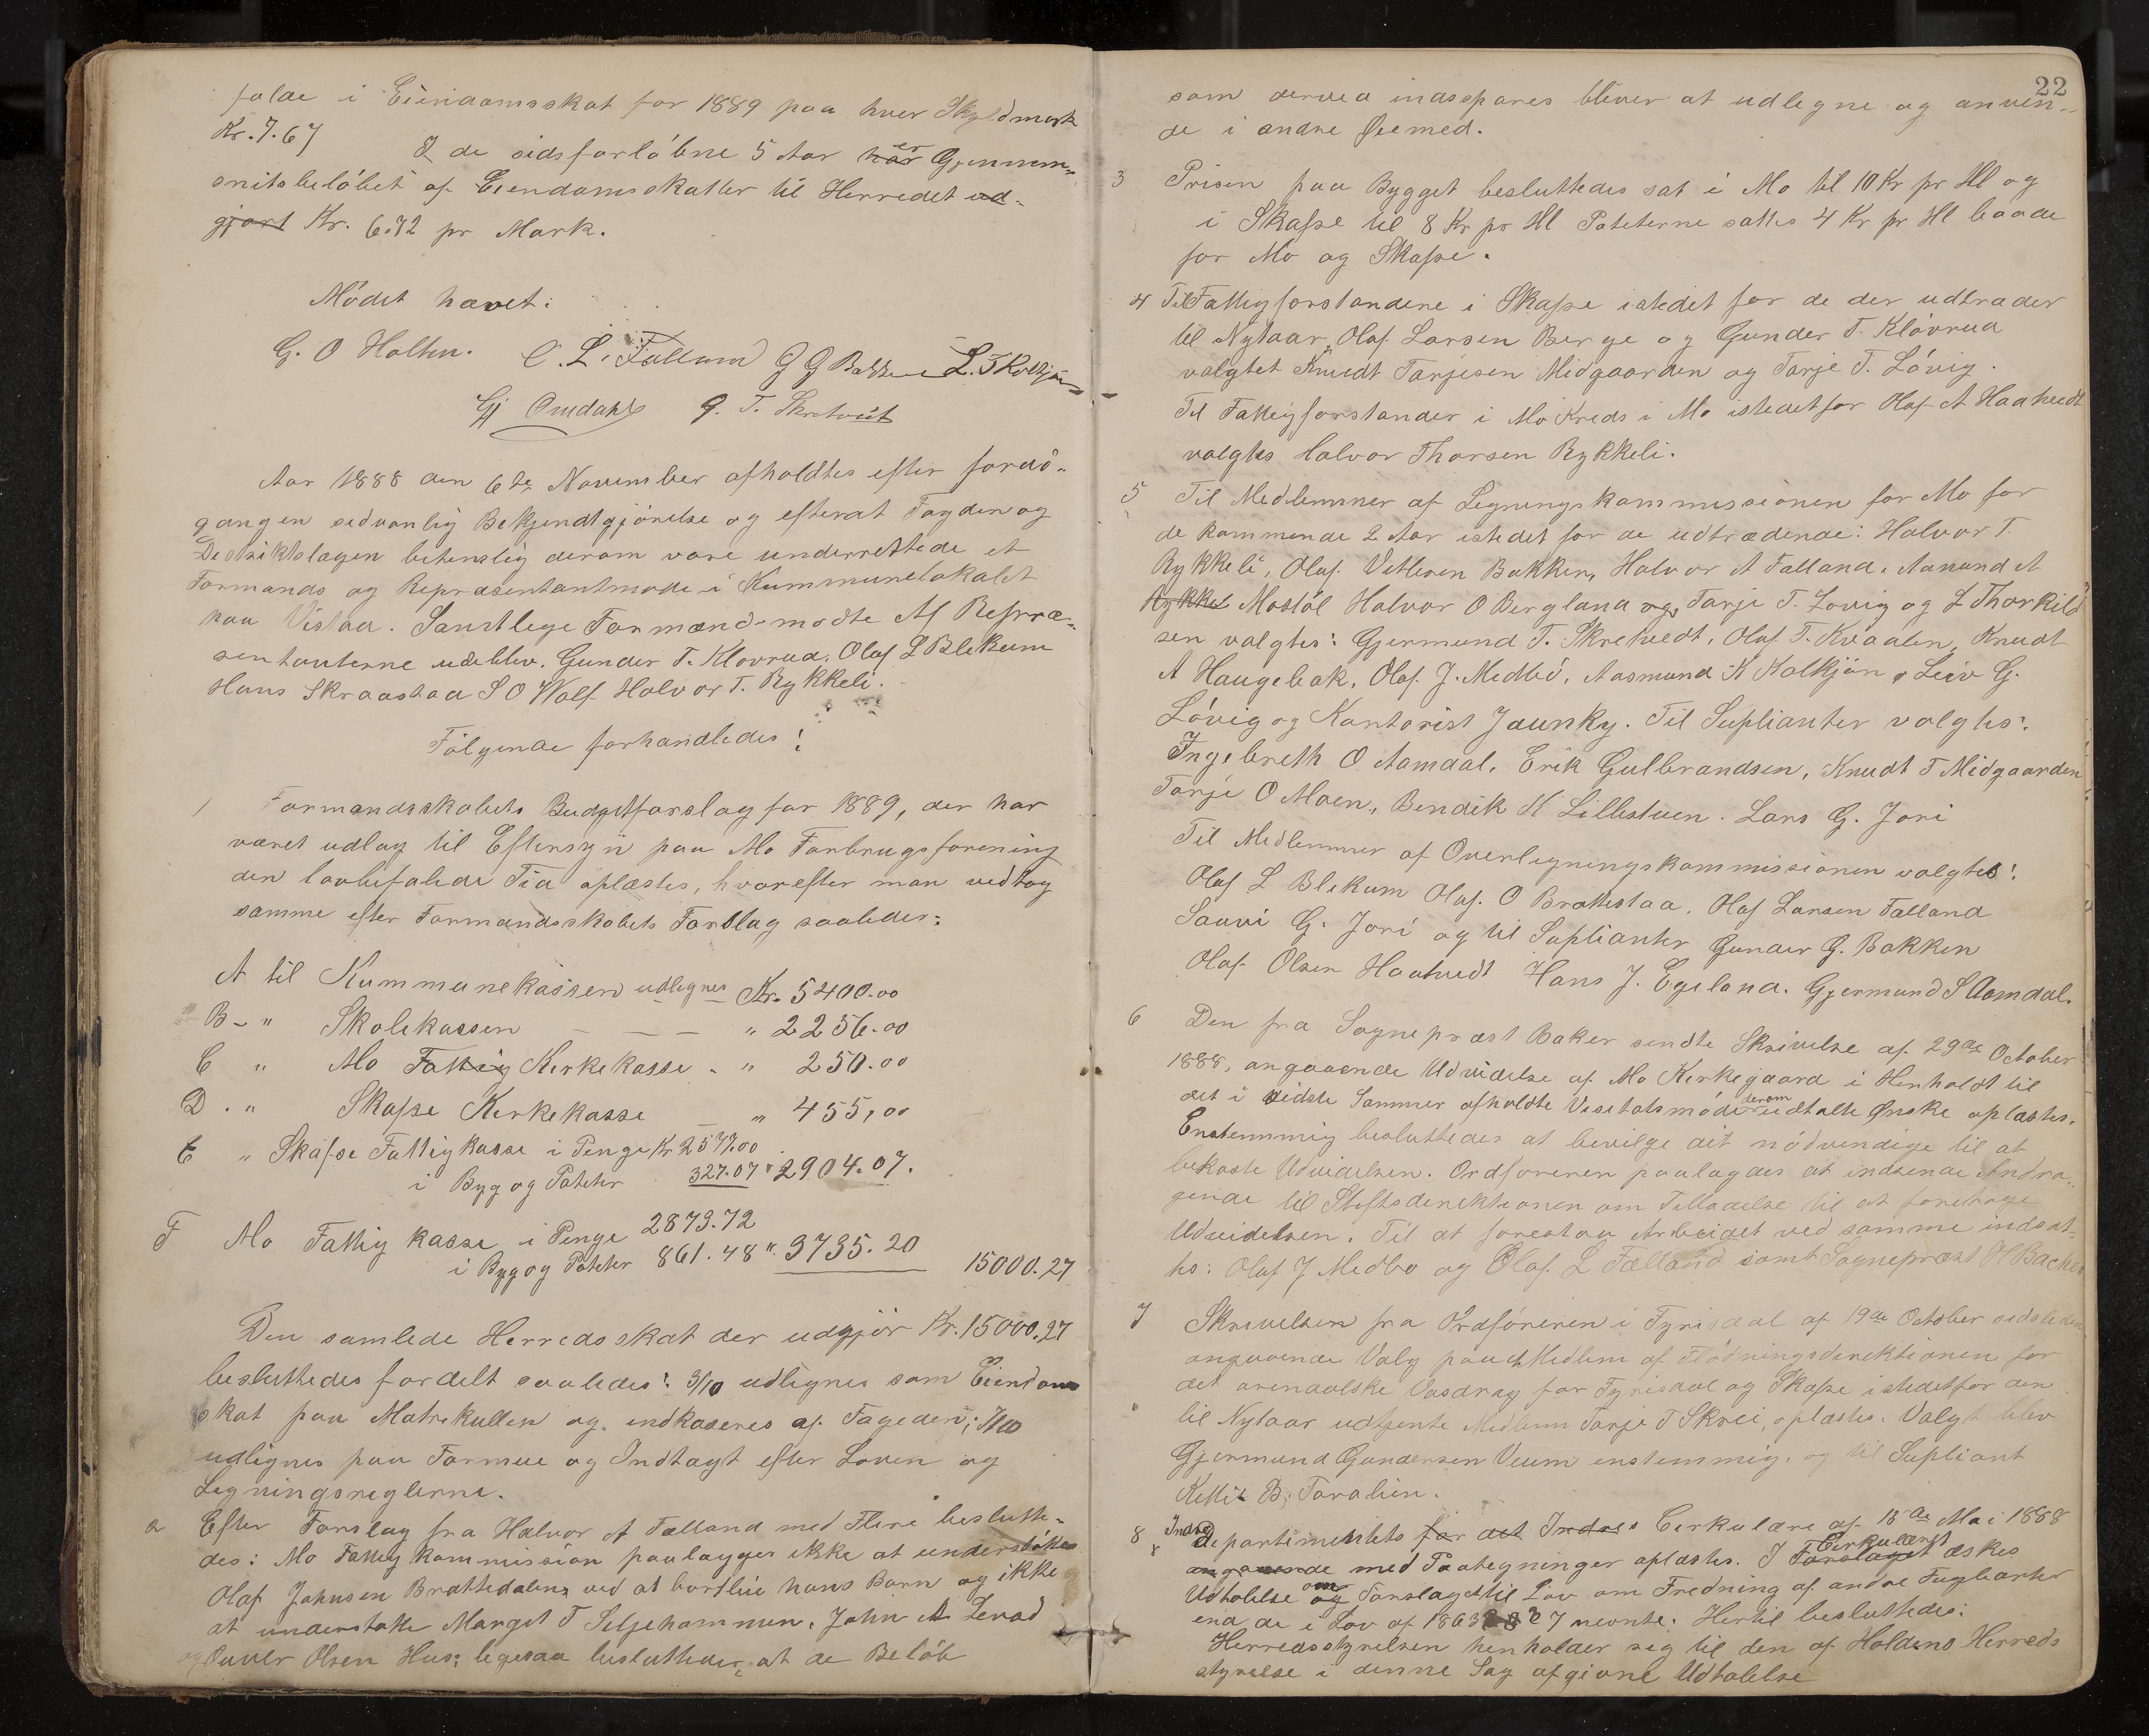 falde i Eiendomsskat for 1889 paa hver Skyldmark
Kr. 7.67
I de sidsforløbne 5 Aar har er Gjennem-
snitsbeløbet af Eiendomsskatter til Herredet ud-
gjort Kr. 6.72 pr Mark.
Mødet hævet.
G. O Holten. O. L. Falland G G Bakken L. T Kolkjøn
Gj Omdahl G. T. Skretveit
Aar 1888 den 6te November afholdtes efter fordø-
gangen sedvanlig Bekjendtgjørelse og efterat Fogden og
Destriktslægen betenslig derom vare underrettede et
Formands og Repræsentantmøde i Kummunelokalet
paa Vistad. Samtlege Formænd mødte Af Repræ-
sentanterne udeblev. Gunder T. Klovrud, Olaf L Blekum
Hans Skraastad S O Wolf Halvor T. Rykkeli.
Følgende forhandledes:
1 Formandsskabets Budgetforslag for 1889, der har
været udlag til Eftersyn paa Mo Forbrugsforening
den lovbefalede Tid oplæstes, hvorefter man vedtog
samme efter Formandsskabets Forslag saaledes:
A til Kummunekassen udlegnes Kr. 5400.00
B - " Skolekassen — — — " 2256.00
C " Mo Fattig Kerkekasse - " 250.00
D . " Skafse Kerkekasse — " 455,00
E " Skafse Fattigkasse i Penge Kr 2577.00
i Byg og Poteter 327.07 " 2904.07.
F Mo Fattig kasse i Penge 2873.72
i Byg og Poteter 861.48 " 3735.20 15000.27
Den samlede Herredsskat der udgjør Kr. 15000.27
besluttedes fordelt saaledes: 3/10 udlignes som Eiendoms
skat paa Matrekullen og indkaseres af Fageden; 7/10
udlignes paa Formue og Indtægt efter Loven og
Legningsreglerne.
2 Efter Forslag fra Halvor A Fælland med Flere beslutte-
des: Mo Fattigkommission paalægges ikke at understøtte
Olaf Johnsen Brattedalen ved at bortleie hans Børn og ikke
at understøtte Margit T Seljehammen, John A Levad
og Ouver Olsen Hus: legesaa besluttedes, at de Beløb
22
som derved indsspares bliver at udlegne og anven-
de i andre Øiemed.
3 Prisen paa Bygget besluttedes sat i Mo til 10 Kr pr Hl og
i Skafse til 8 Kr pr Hl Poteterne sattes 4 Kr pr Hl baade
for Mo og Skafse.
4 Til Fattigforstandere i Skafse istedet for de der udtræder
til Nytaar, Olaf Larsen Berge og Gunder T. Kløvrud
valgtet Knudt Tarjesen Midgaarden og Tarje T. Løvig.
Til Fattigforstander i Mo Kreds i Mo istedetfor Olaf A Haatvedt
valgtes Halvor Thorsen Rykkeli.
5 Til Medlemmer af Legningskommissionen for Mo for
de kommende 2 Aar istedet for de udtrædende: Halvor T.
Rykkeli, Olaf Vetlesen Bakken, Halvor A Falland, Aanund A
Rykkel Mostøl Halvor O Bergland og, Tarje T. Lovig og L Thorkild
sen valgtes: Gjermund T. Skretvedt, Olaf T. Kvaalen, Knudt
A Haugebak, Olaf J. Medbø, Aasmund K Kolkjøn, Leiv G.
Løvig og Kantorist Jaunky. Til Suplianter valgtes:
Ingebreth O Aamdal, Erik Gulbrandsen, Knudt T Midgaarden
Tarje O Moen, Bendik K Lillestuen. Lars G. Jori
Til Medlemmer af Overligningskommissionen valgtes:
Olaf L Blekum Olaf. O Brattestaa, Olaf Larsen Fælland
Sauvi G. Jori og til Suplianter Gunder G. Bakken
Olaf Olsen Haatvedt Hans J. Egeland. Gjermund S Aamdal.
6 Den fra Sognepræst Baker sendte Skrivelse af 29de October
1888, angaaende Udvidelse af Mo Kerkegaard i Henholdt til
det i sidste Sommer afholdte Visitatsmøde derom udtalte Ønske oplæstes.
Enstemmig besluttedes at bevilge det nødvendige til at
bekoste Udvidelsen. Ordføreren paalagdes at indsende Andra-
gende til Stiftsderektionen om Tilladelse til at foretage
Udvidelsen. Til at forestaa Arbeidet ved samme indsat-
tes: Olaf J Medbo og Olaf L Fælland samt Sognepræst H Backer
7 Skrivelsen fra Ordføreren i Tyrisdal af 19de October sidsleden
angaaende Valg paa et Medlem af Flødningsderektionen for
det arendalske Vasdrag for Tyrisdal og Skafse istedetfor den
til Nytaar udtjente Medlem Tarje T Skrei, oplæstes. Valgt blev
Gjermund Gundersen Veum enstemmig, og til Supliant
Kettil B. Faralien.
8 Indre Departimentets for det Indres Cerkulære af 18de Mai 1888
angaaende med Paategninger oplæstes. I Forslaget Cerkulæret æskes
Udtalelse og om Forslaget til Lov om Fredning af andre Fuglearter
end de i Lov af 1863 § 7 nevnte. Hertil besluttedes:
Herredsstyrelsen henholder sig til den af Holdens Herreds
styrelse i denne Sag afgivne Udtalelse